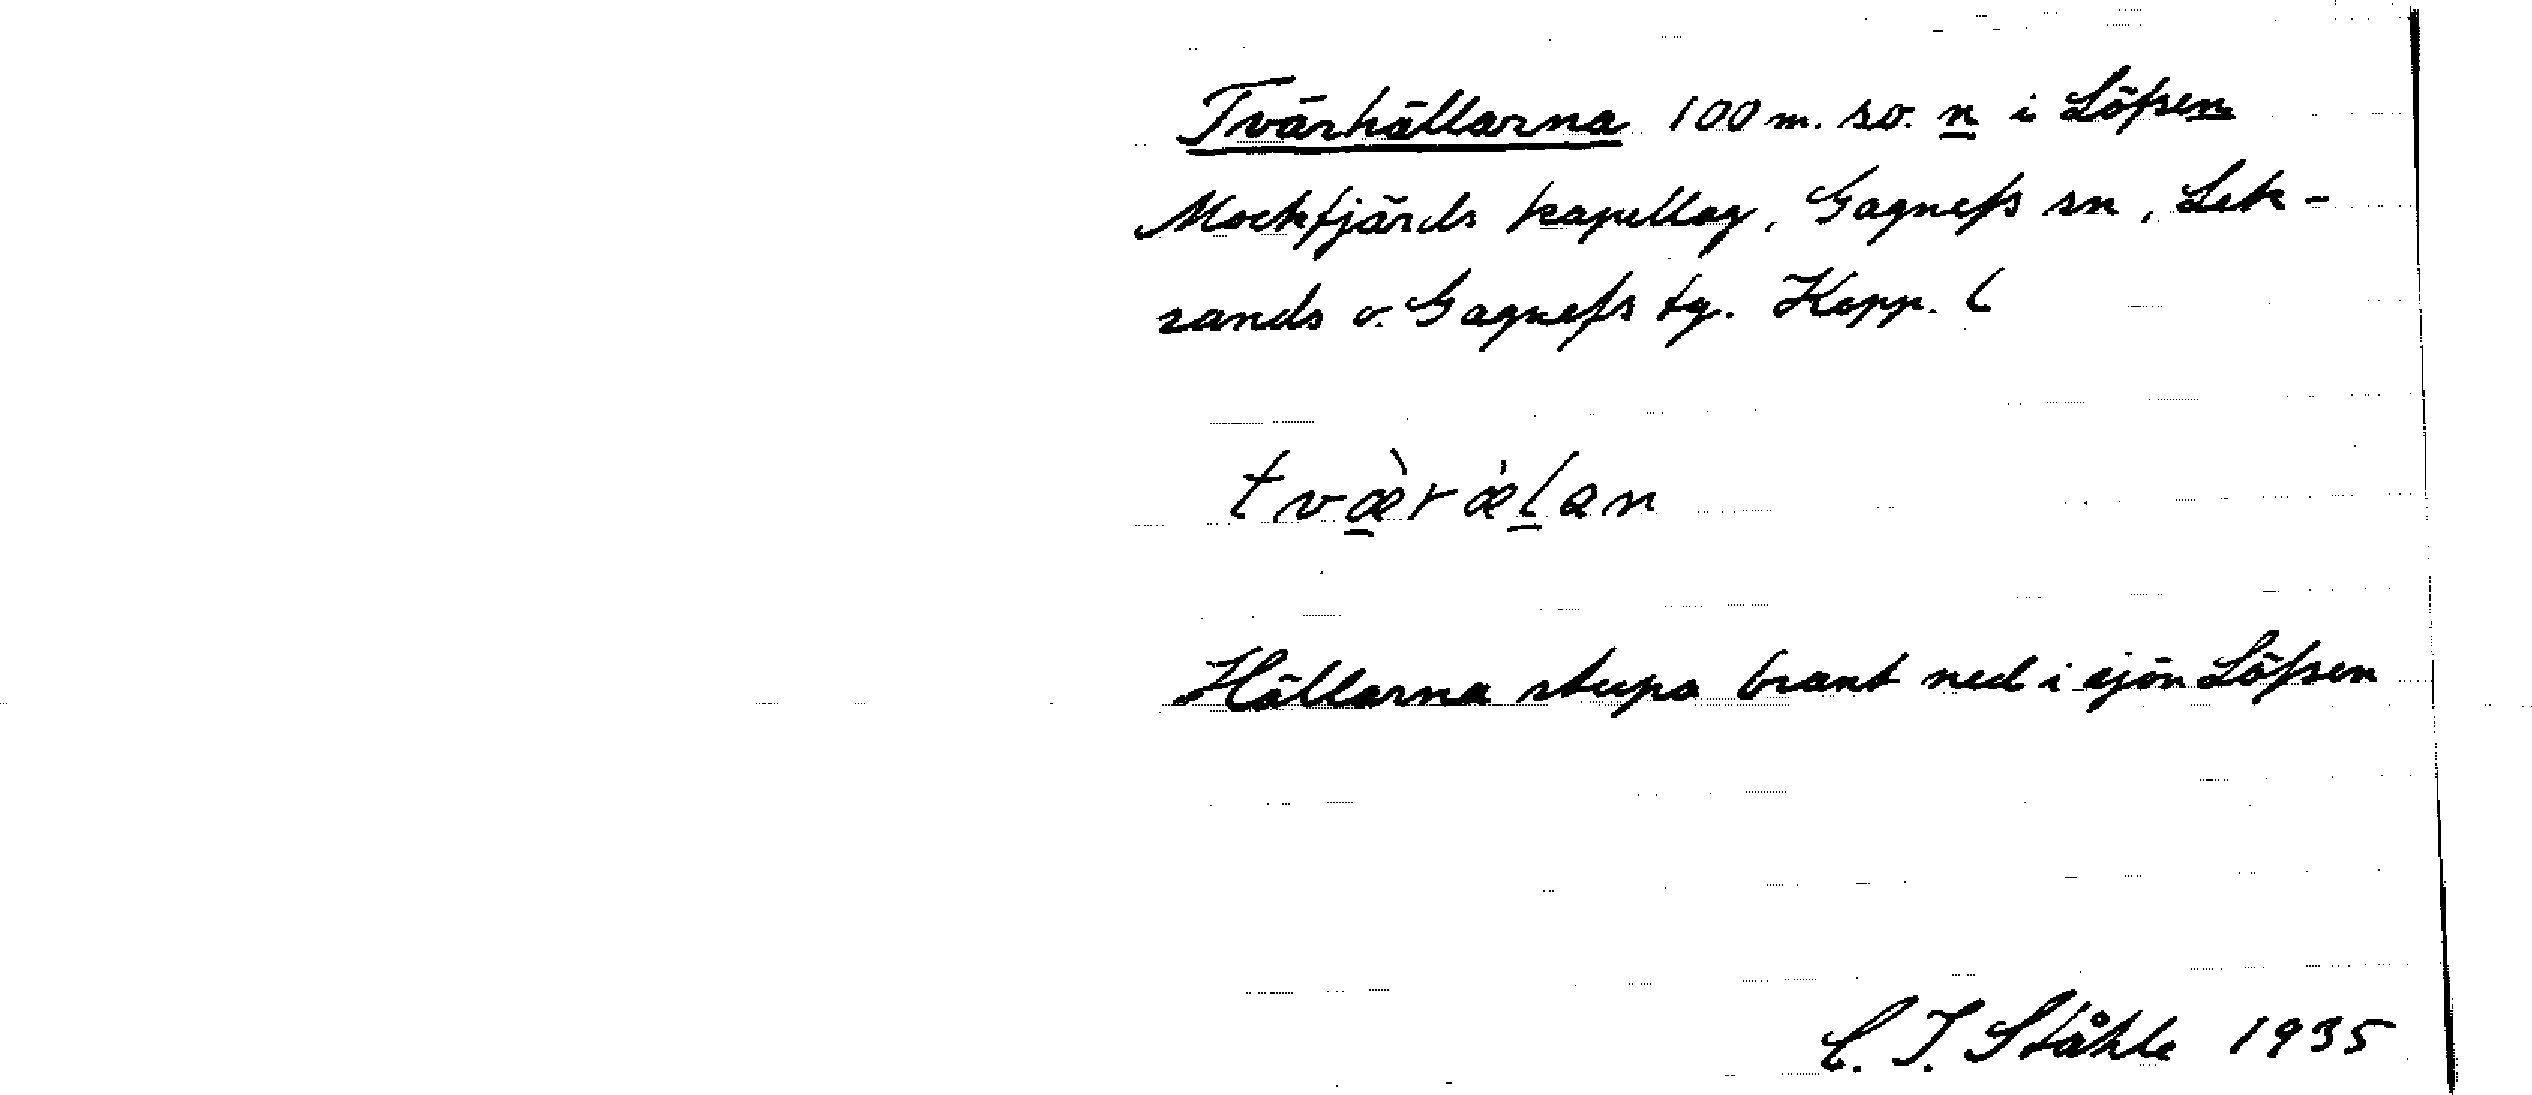 Tvärhällarna 100 m. so. n i Löfsen
Mockfjärds kapellag, Gagnefs sn, Lek-
sands o. Gagnefs tg. Kopp. l
tvæ̀ræ̀lan
Hällarna stupa brant ned i sjön Löfsen
C. I. Ståhle 1935